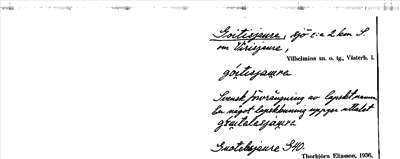 Goitisjaure, sjö c:a 2 km S.
om Virisjaure,
Vilhelmina sn. o. tg., Västerb. l.
góitisjaúre
Svensk förvrängning av lapskt namn
En något lapskkunnig uppger uttalet
Gnotelisjaure G40.
Thorbjörn Eliasson, 1936.